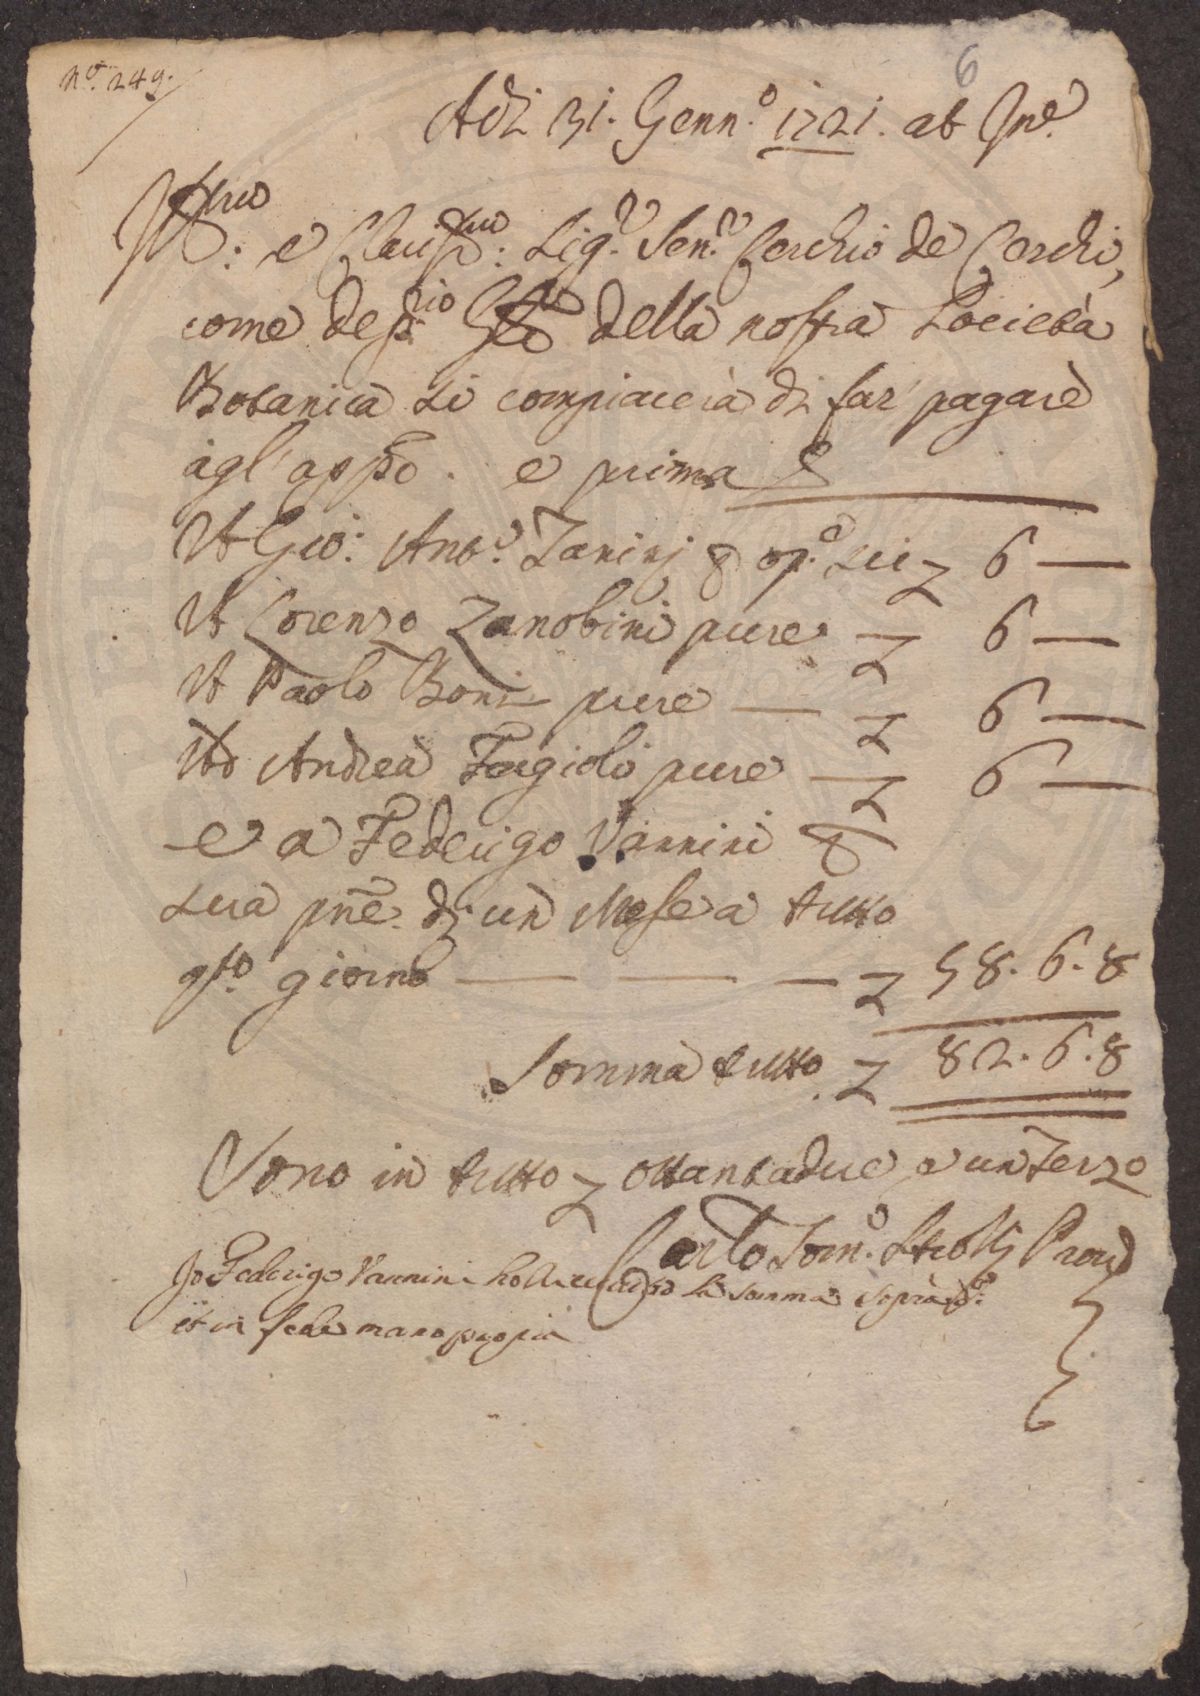 N.º 249.
6
Adi 31. Genn.º 1721. ab In.e
Ill.mo: e Clariss.mo: Sig.r Sen.r Cerchio de Cerchi,
come dep.rio G.le della nostra Società
Botanica si compiacerà di far' pagare
agl'app.o. e prima
A Gio: Ant.o Zanini p op.e sei £ 6 —
A Lorenzo Zanobini pure £ 6 —
A Paolo Boni pure — £ 6 —
Ad Andrea Fagioli pure — £ 6 —
e a Federigo Vannini p
sua pne. di un Mese a tutto
q.sto giorno — — — £ 58. 6. 8
Somma tutto £ 82. 6. 8
Sono in tutto £ ottantadue e un Terzo
Carlo Tom.o Strozzi Prov.
Io Federigo Vannini ho la somma sopra d.a
et in fede mano propria